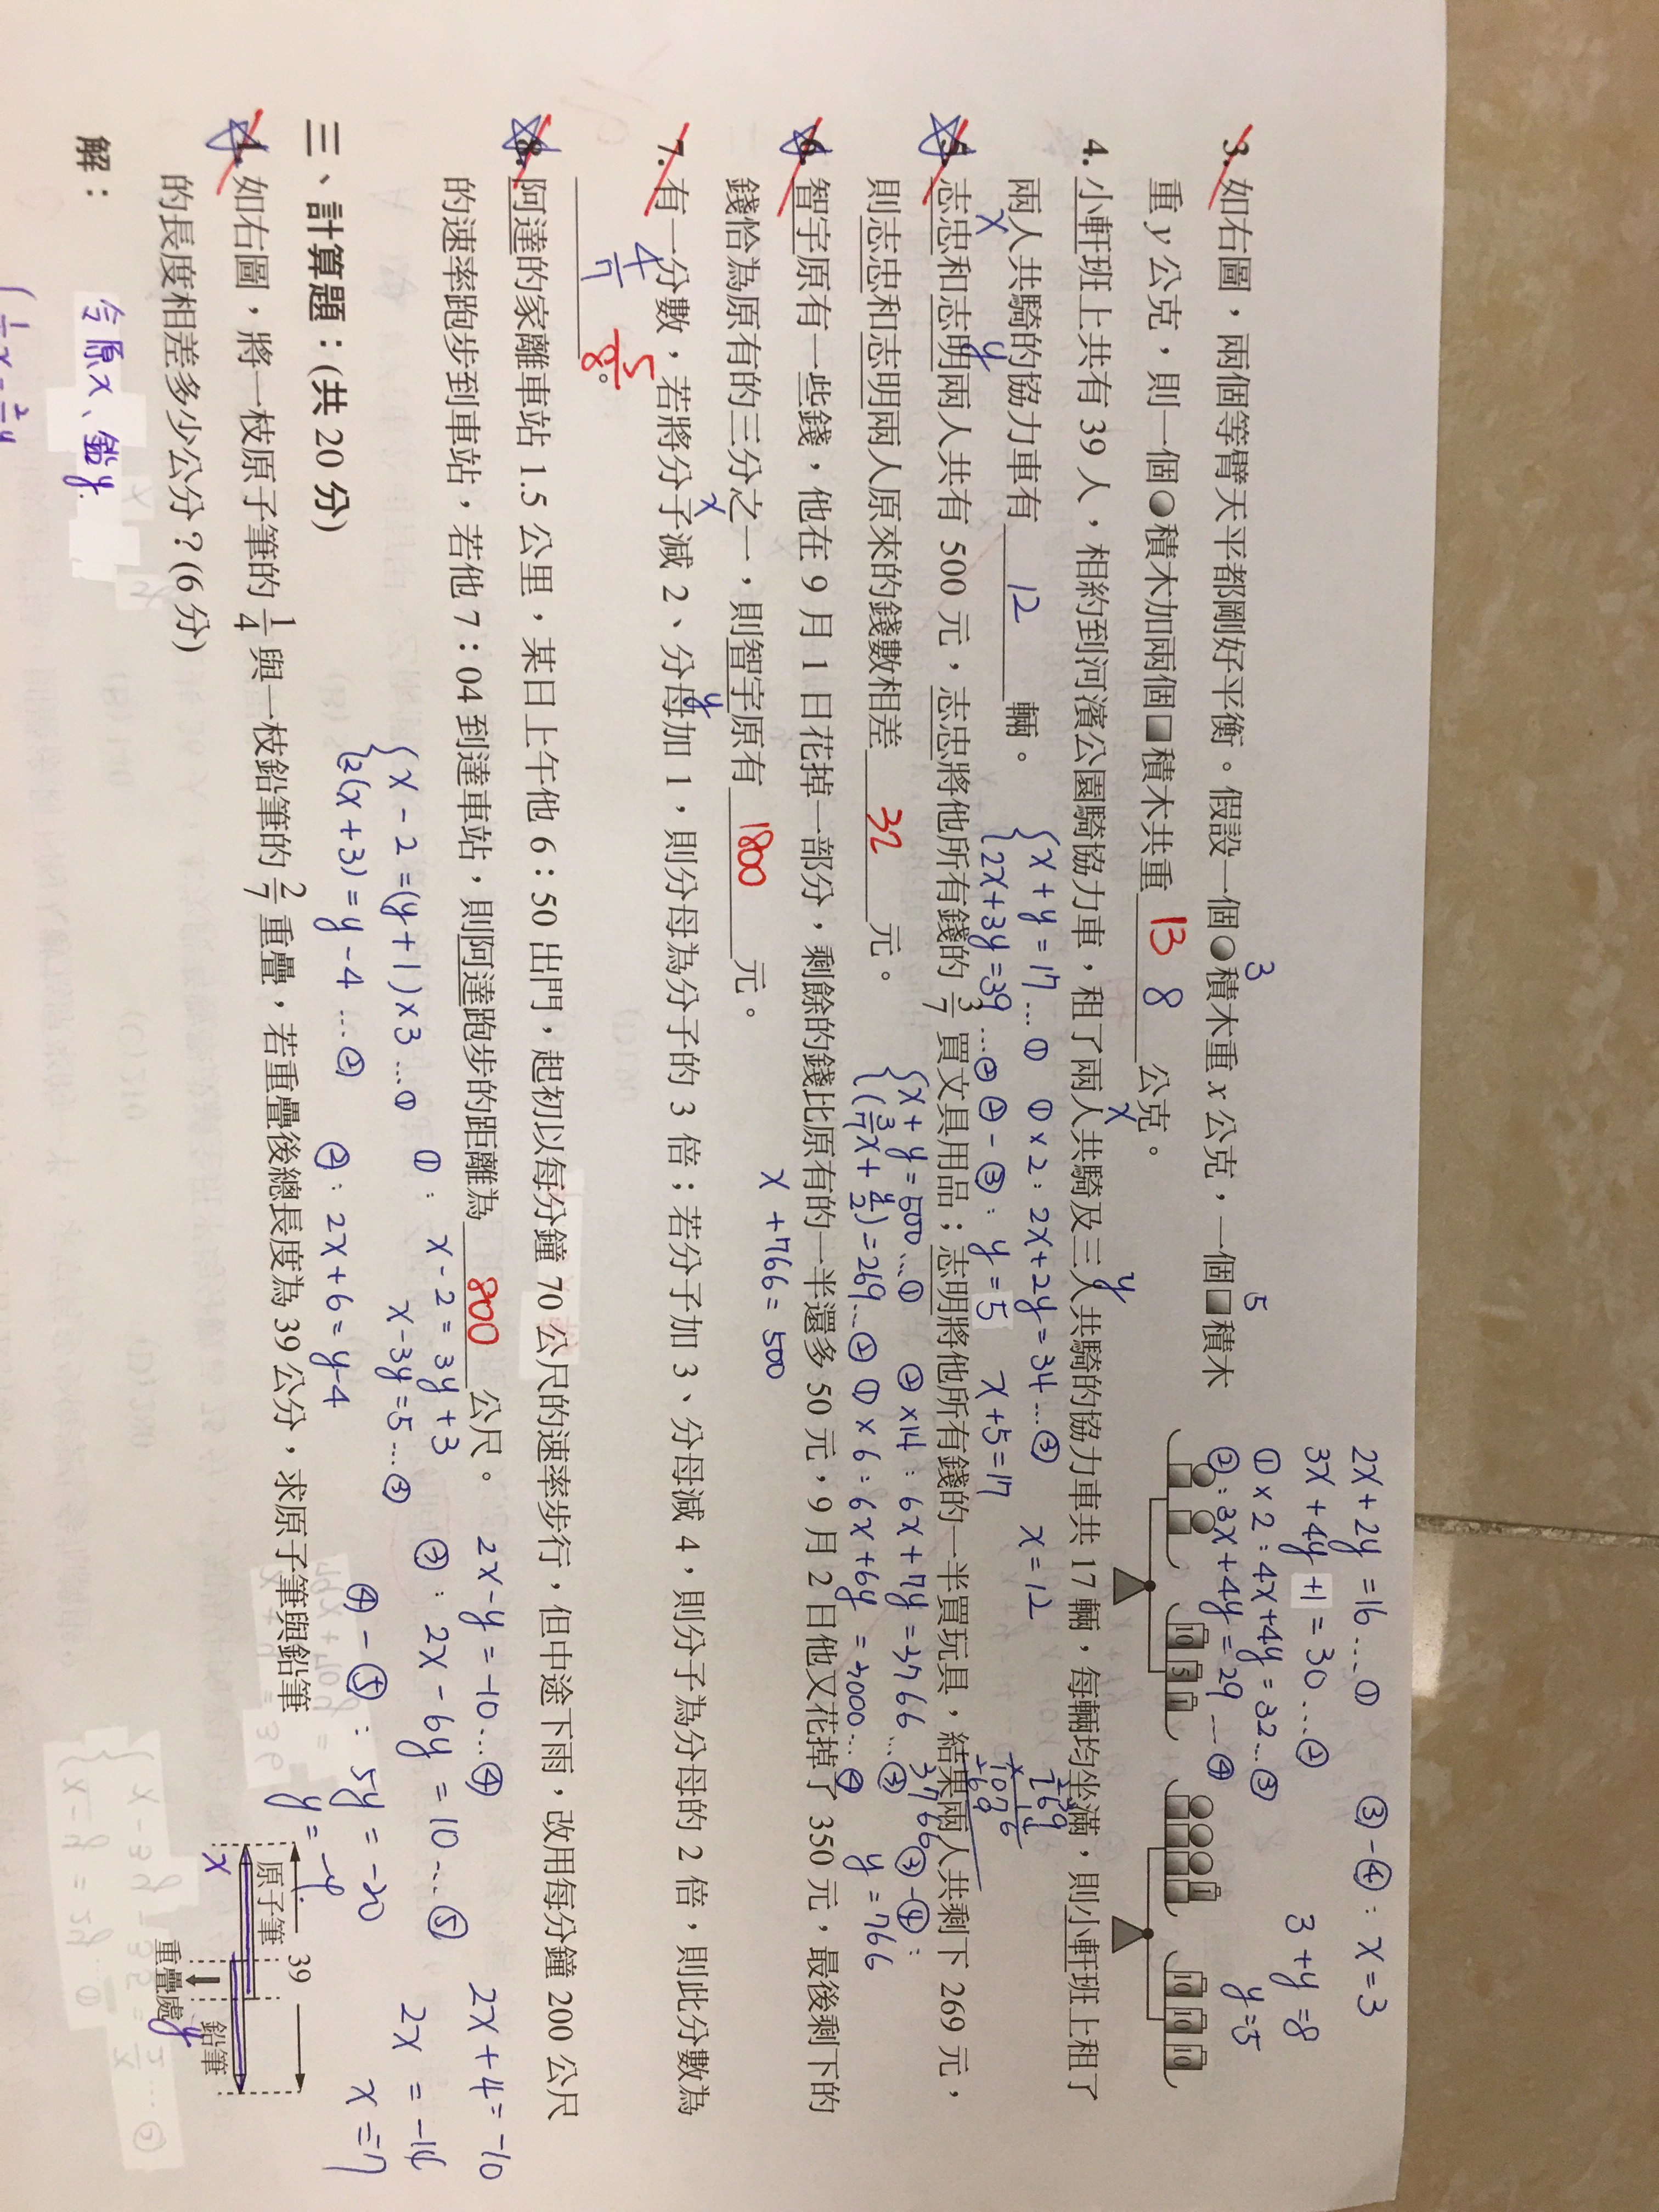 2x+2y=16…①
3x+4y+1=30…②
①×2：4x+4y=32…③
②：3x+4y=29…④
③-④：x=3
3+y=8
y=5
3 5
3. 如右圖，兩個等臂天平都剛好平衡。假設一個●積木重 x 公克，一個■積木
重 y 公克，則一個●積木加兩個■積木共重 13 8 公克。
10 5 1
1
10 10 10
x y
4. 小軒班上共有 39 人，相約到河濱公園騎協力車，租了兩人共騎及三人共騎的協力車共 17 輛，每輛均坐滿，則小軒班上租了
兩人共騎的協力車有 12 輛。
x+y=17…① ①×2：2x+2y=34…③ x=12
2x+3y=39…② ②-③：y=5 x+5=17
269
14
1076
269
3766
x y
5. 志忠和志明兩人共有 500 元，志忠將他所有錢的 3/7 買文具用品；志明將他所有錢的一半買玩具，結果兩人共剩下 269 元，
則志忠和志明兩人原來的錢數相差 32 元。
x+y=500…① ②×14：6x+7y=3766…③ ③-④：
(3/7x+y/2)=269…② ①×6：6x+6y=3000…④ y=766
6. 智宇原有一些錢，他在 9 月 1 日花掉一部分，剩餘的錢比原有的一半還多 50 元，9 月 2 日他又花掉了 350 元，最後剩下的
錢恰為原有的三分之一，則智宇原有 1800 元。
x+766=500
x y
7. 有一分數，若將分子減 2、分母加 1，則分母為分子的 3 倍；若分子加 3、分母減 4，則分子為分母的 2 倍，則此分數為
4/7 5/8 。
8. 阿達的家離車站 1.5 公里，某日上午他 6：50 出門，起初以每分鐘 70 公尺的速率步行，但中途下雨，改用每分鐘 200 公尺
的速率跑步到車站，若他 7：04 到達車站，則阿達跑步的距離為 800 公尺。
x-2=(y+1)×3…① ①：x-2=3y+3 2x-y=-10…④ 2x+4=-10
x-3y=5…③ ③：2x-6y=10…⑤ 2x=-14
2(x+3)=y-4…② ②：2x+6=y-4 ④-⑤：5y=-20 x=-7
y=-4
三、計算題：(共 20 分)
1. 如右圖，將一枝原子筆的 1/4 與一枝鉛筆的 2/7 重疊，若重疊後總長度為 39 公分，求原子筆與鉛筆
的長度相差多少公分？(6 分)
39
原子筆
x
重疊處
鉛筆
y
解：
令原x、鉛y.